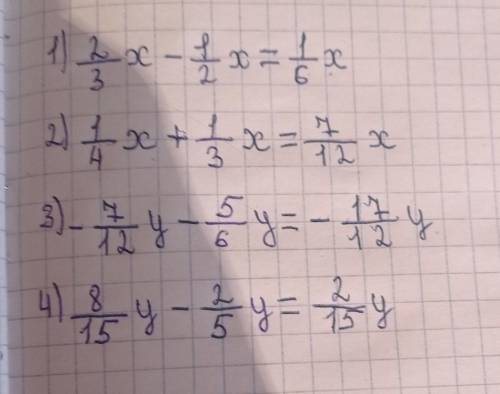 1) 2/3 x - 1/2 x = 1/6 x
2) 1/4 x + 1/3 x = 7/12 x
3) - 7/12 y - 5/6 y = - 17/12 y
4) 8/15 y - 2/5 y = 2/15 y